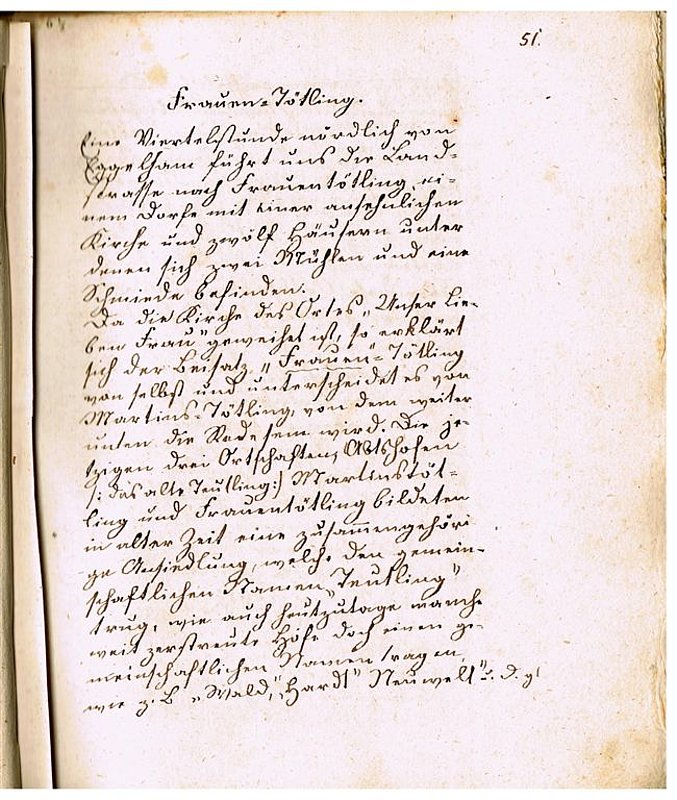 51.
Frauen-Tötling.
Eine Viertelstunde nördlich von
Eggelham führt uns die Land-
strasse nach Frauentötling, ei-
nem Dorfe mit einer ansehnlichen
Kirche und zwölf Häusern unter
denen sich zwei Mühlen und eine
Schmiede befinden.
Da die Kirche des Ortes „Unser Lie-
ben Frau" geweihet ist, so erklärt
sich der Beisatz „Frauen"-Tötling
von selbst und unterscheidet es von
Martins-Tötling, von dem weiter
unten die Rede sein wird. Die je-
tzigen drei Ortschaften, Abtshofen
/: das alte Teutling :/ Martinstöt-
ling und Frauentötling bildeten
in alter Zeit eine zusammengehöri
ge Ansiedlung, welche den gemein-
schaftlichen Namen „Teutling"
trug, wie auch heutzutage manche
weit zerstreute Höfe doch einen ge-
meinschaftlichen Namen tragen
wie z. B. „Wald", „Hardt" Neuwelt" u. d. gl